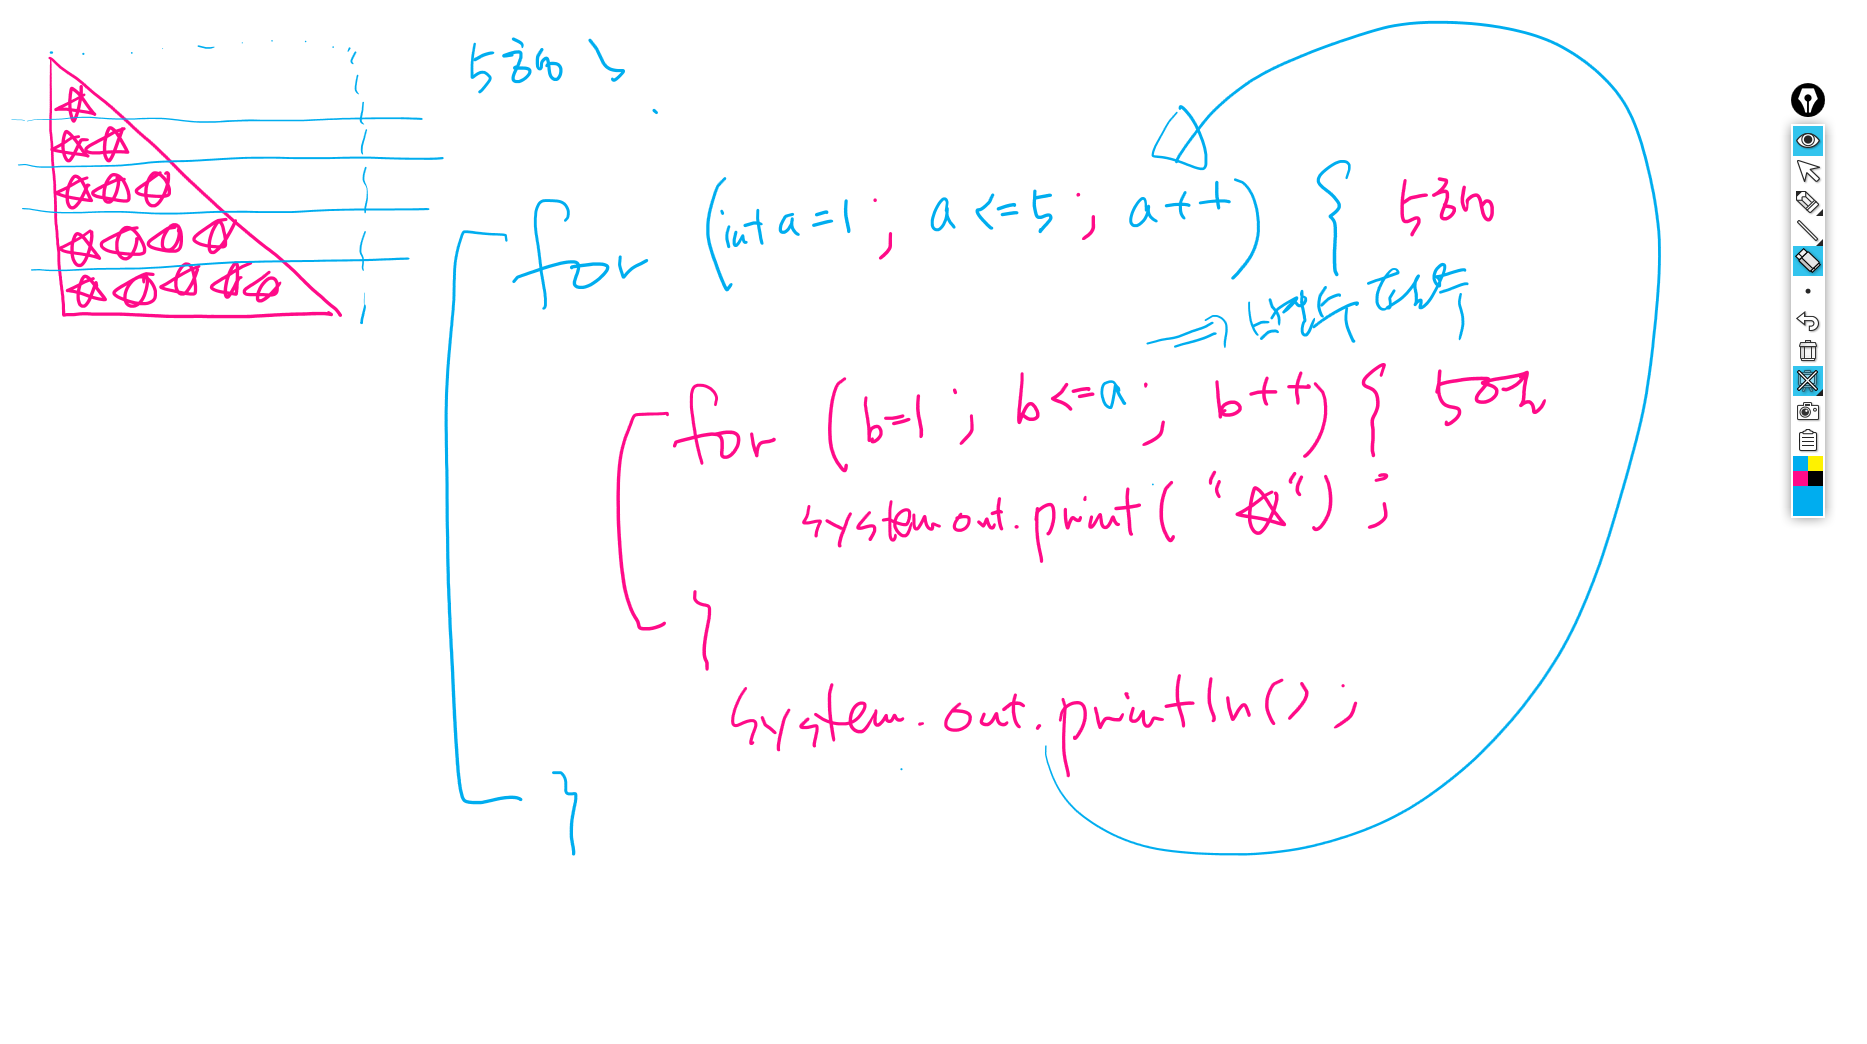 5행
for (int a=1; a<=5; a++) { 5행
⇒ 변수
for (b=1; b<=a; b++) { 5열
system out.print("☆");
}
System.out.println();
}